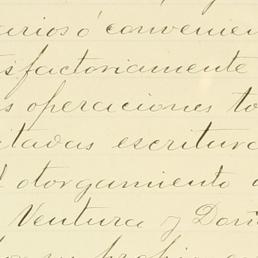 arios ó convenien
sfactoriamente
s operaciones to
itadas escritura
l otorgamiento
Ventura y Doñ